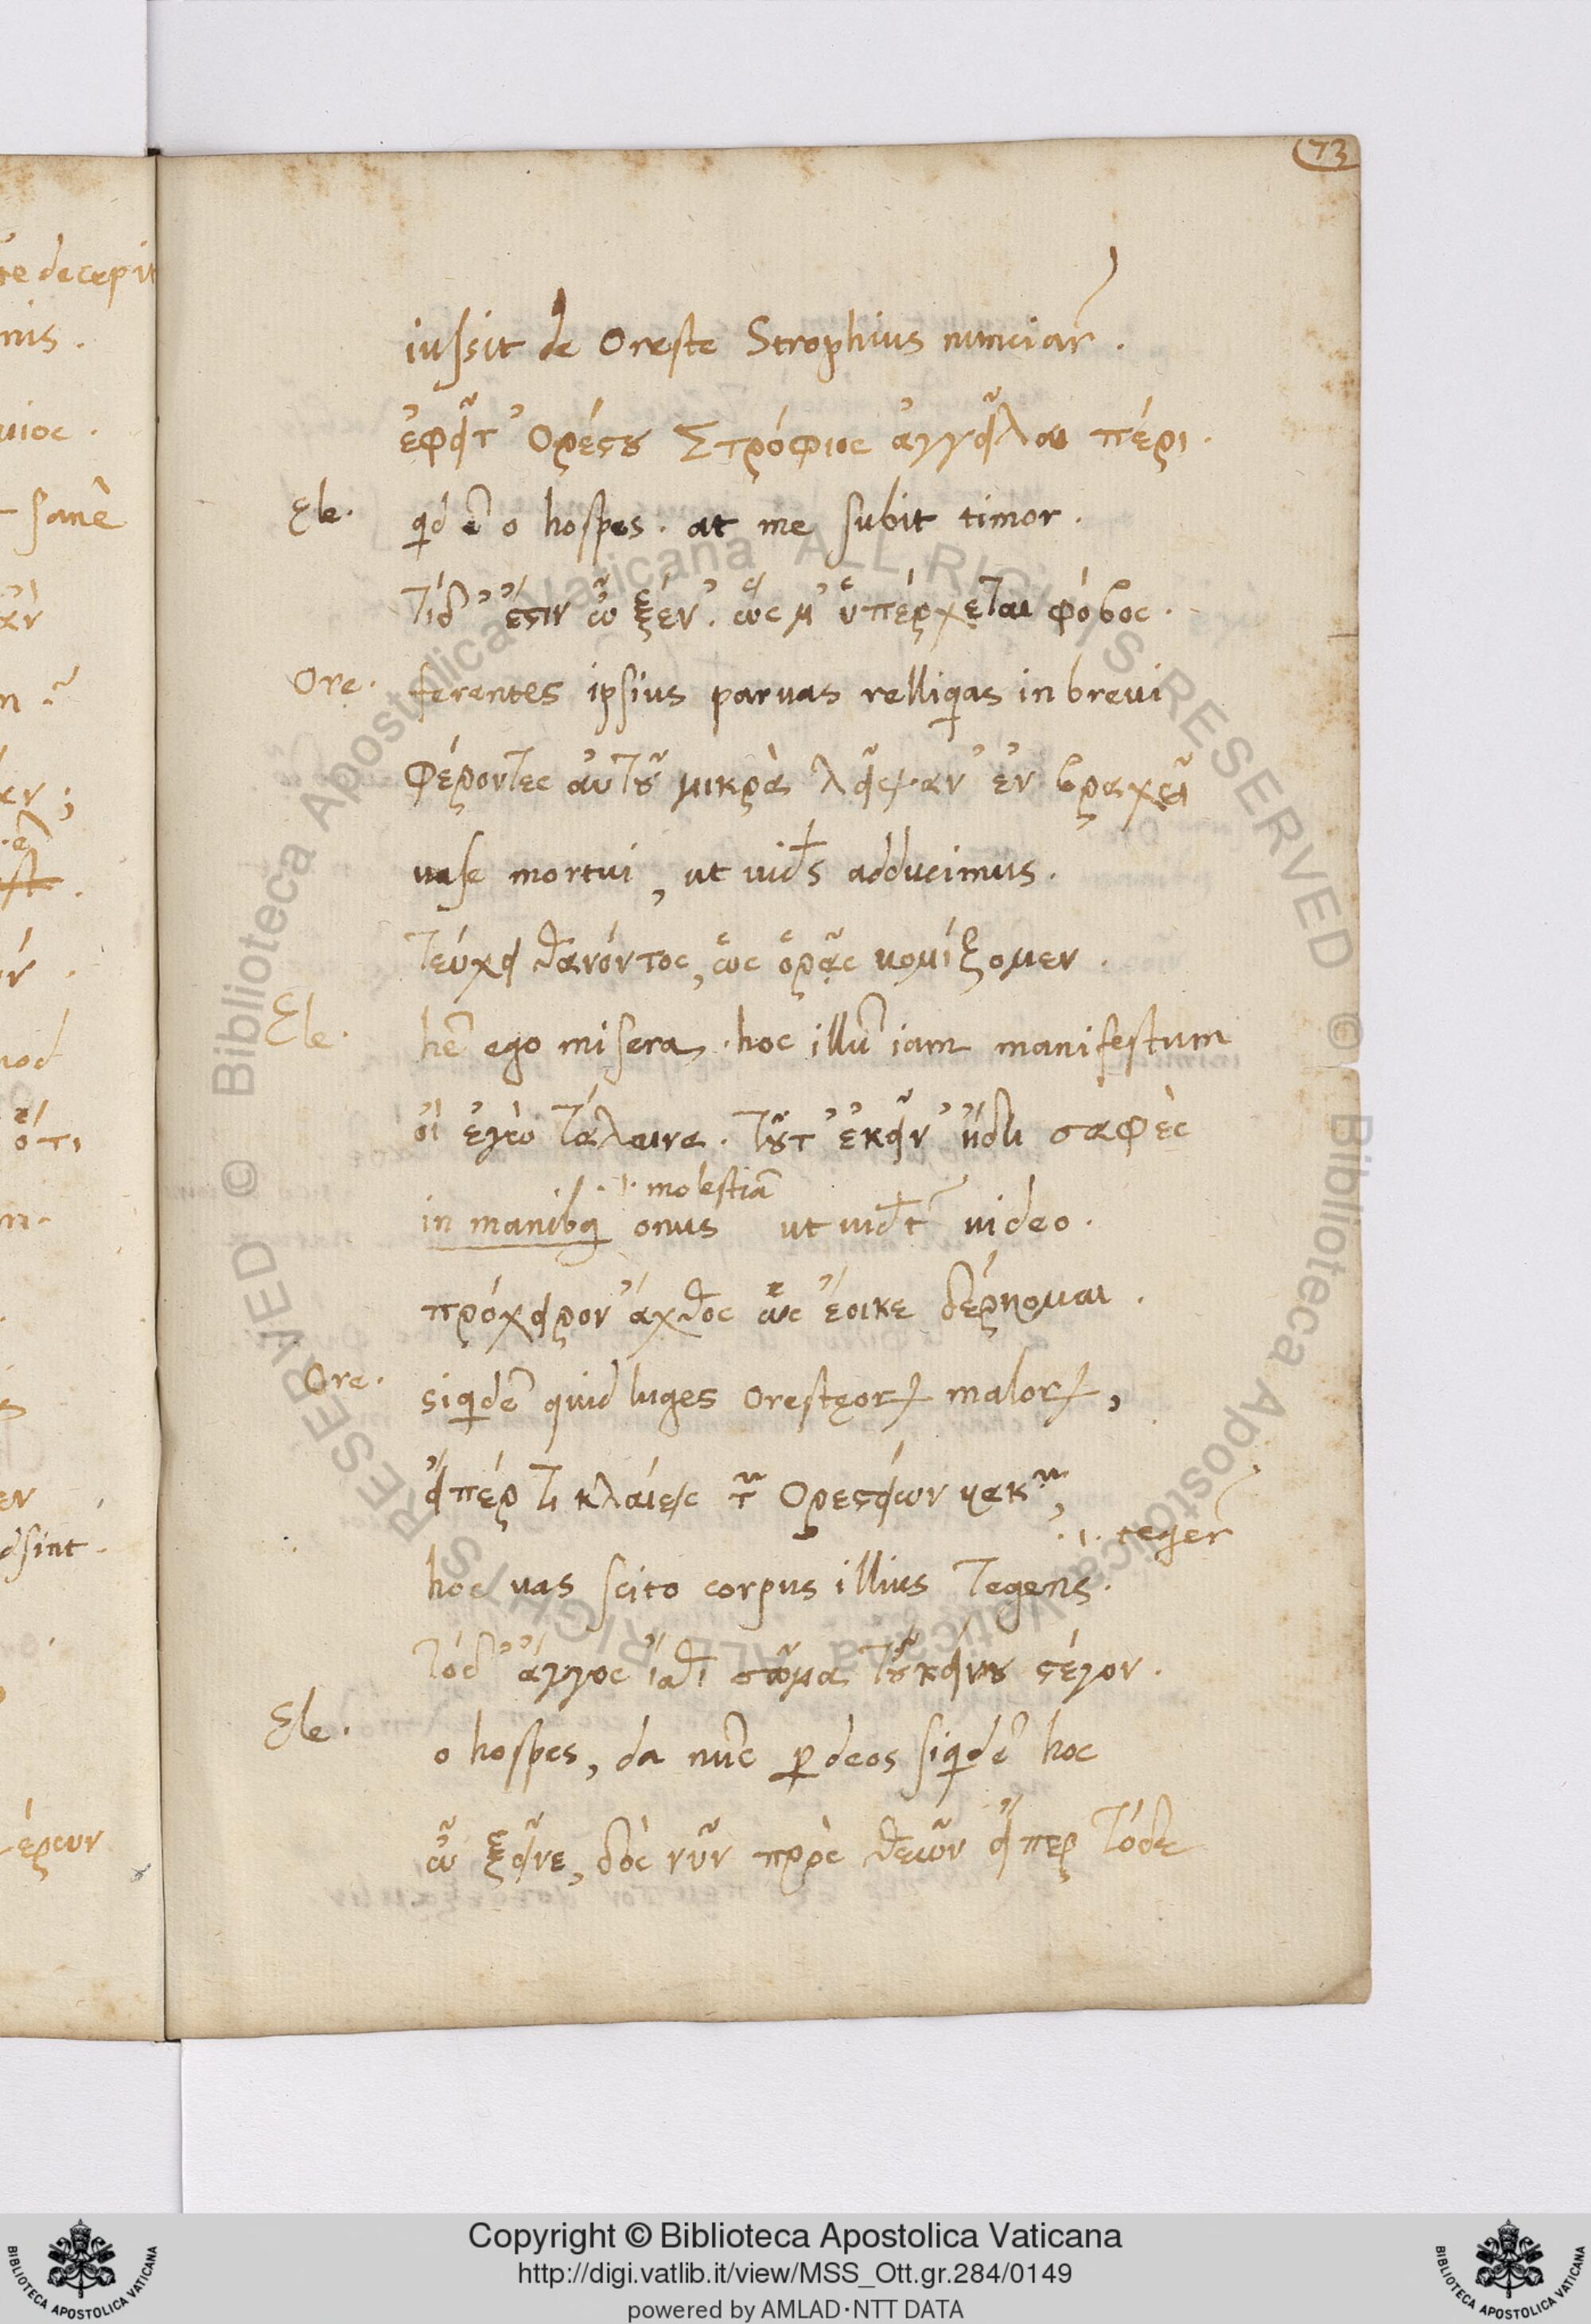 73
iussit de Oreste Strophius nunciar̃.
ἐφεῖτ' Ὀρέστου Στρόφιος ἀγγεῖλαι πέρι.
Ele. qid ẽ o hospes. at me subit timor.
τίδ' ἔστιν ὦ ξέν'. ὥς μ' ὑπέρχεται φόβος.
Ore. ferentes ipsius paruas relliqias in breui
φέροντες αὐτοῦ μικρὰ λείψαν' ἐν βραχεῖ
uase mortui, ut uides adducimus.
τεύχει θανόντος, ὡς ὁρᾷς κομίζομεν.
Ele. hẽ ego misera. hoc illũ iam manifestum
οἲ ἐγὼ τάλαινα. τοῦτ' ἐκεῖν' ἤδη σαφὲς
.i. molestiã
in manibq onus ut uidet̃ uideo.
πρόχειρον ἄχθος ὡς ἔοικε δέρκομαι.
Ore. siqidẽ quid luges Oresteorꝝ malorꝝ,
εἴπερ τι κλάιεις τῶν Ὀρεστείων κακῶν,
.i. teger̃
hoc uas scito corpus illius Tegens.
τόδ' ἄγγος ἴσθι σῶμα τοὐκείνου στέγον.
Ele. o hospes, da nũc ꝑ deos siqidẽ hoc
ὦ ξεῖνε, δὸς νῦν πρὸς θεῶν εἴπερ τόδε
Copyright © Biblioteca Apostolica Vaticana
http://digi.vatlib.it/view/MSS_Ott.gr.284/0149
powered by AMLAD·NTT DATA